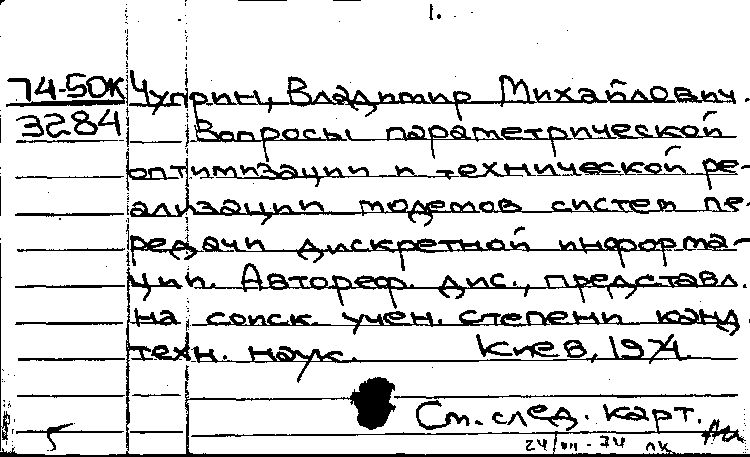 1.
74-50К Чуприн, Владимир Михайлович.
3284 Вопросы параметрической
оптимизации и технической ре-
ализации модемов систем пе-
редачи дискретной информа-
ции. Автореф. дис., представл.
на соиск. учен. степени канд.
техн. наук. Киев, 1974.
См. след. карт.
5